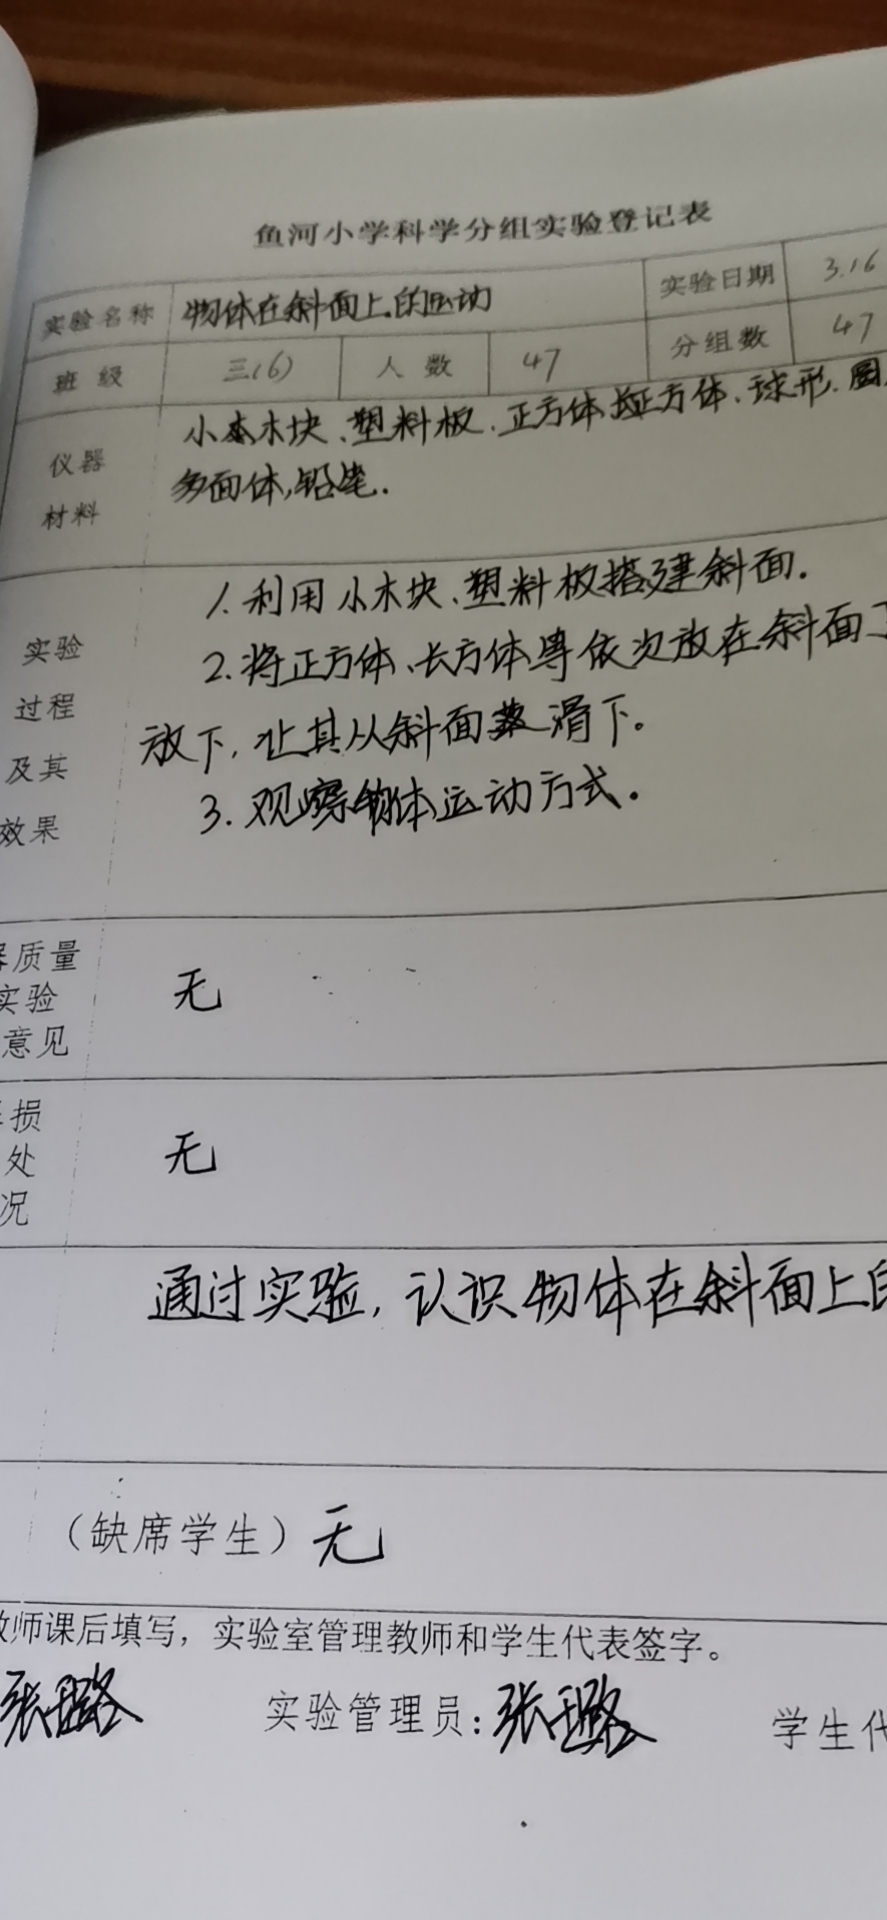 鱼河小学科学分组实验登记表
实验名称 物体在斜面上的运动 实验日期 3.16
班级 三(6) 人数 47 分组数 47
仪器 小木块、塑料板、正方体、长方体、球形、圆
材料 多面体,铅笔.
1.利用小木块、塑料板搭建斜面.
实验 2.将正方体、长方体等依次放在斜面
过程 放下,让其从斜面 滑下。
及其 3.观察物体运动方式。
效果
质量
实验 无
意见
损
处 无
况
通过实验,认识物体在斜面上的
(缺席学生)无
师课后填写,实验室管理教师和学生代表签字。
张璐 实验管理员:张璐 学生代